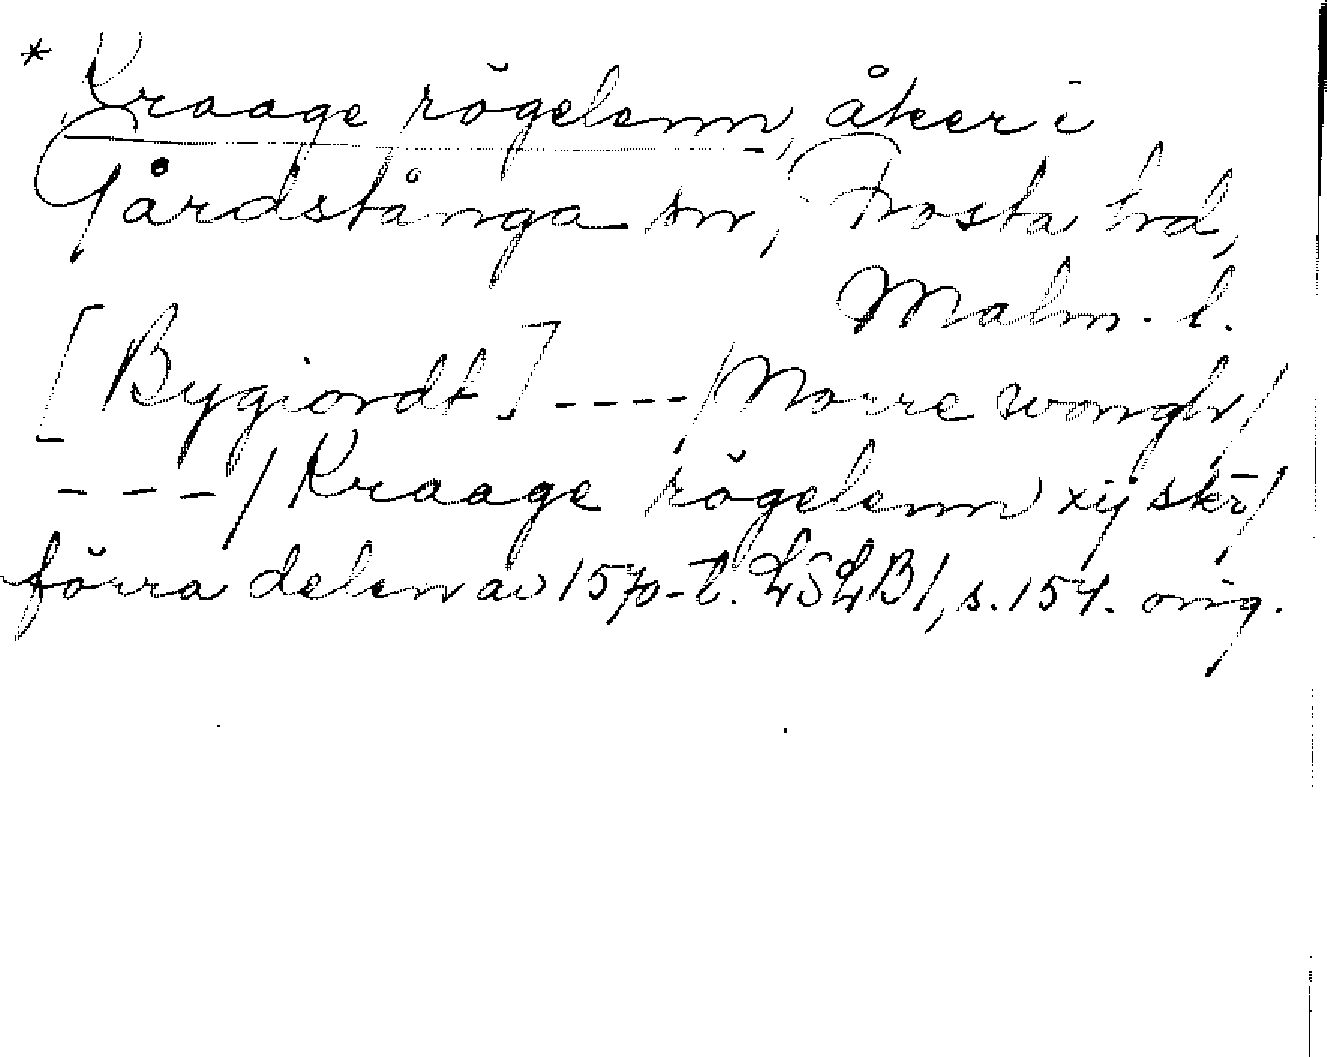 * Kraage rögelenn, åker i
Gårdstånga sn, Frosta hd,
Malm. l.
[Bygiordt] ---- / Norre wongh /
--- / Kraage rögelenn xij skr̄ /
förra delen av 1570-t. LSLB1, s. 154. orig.